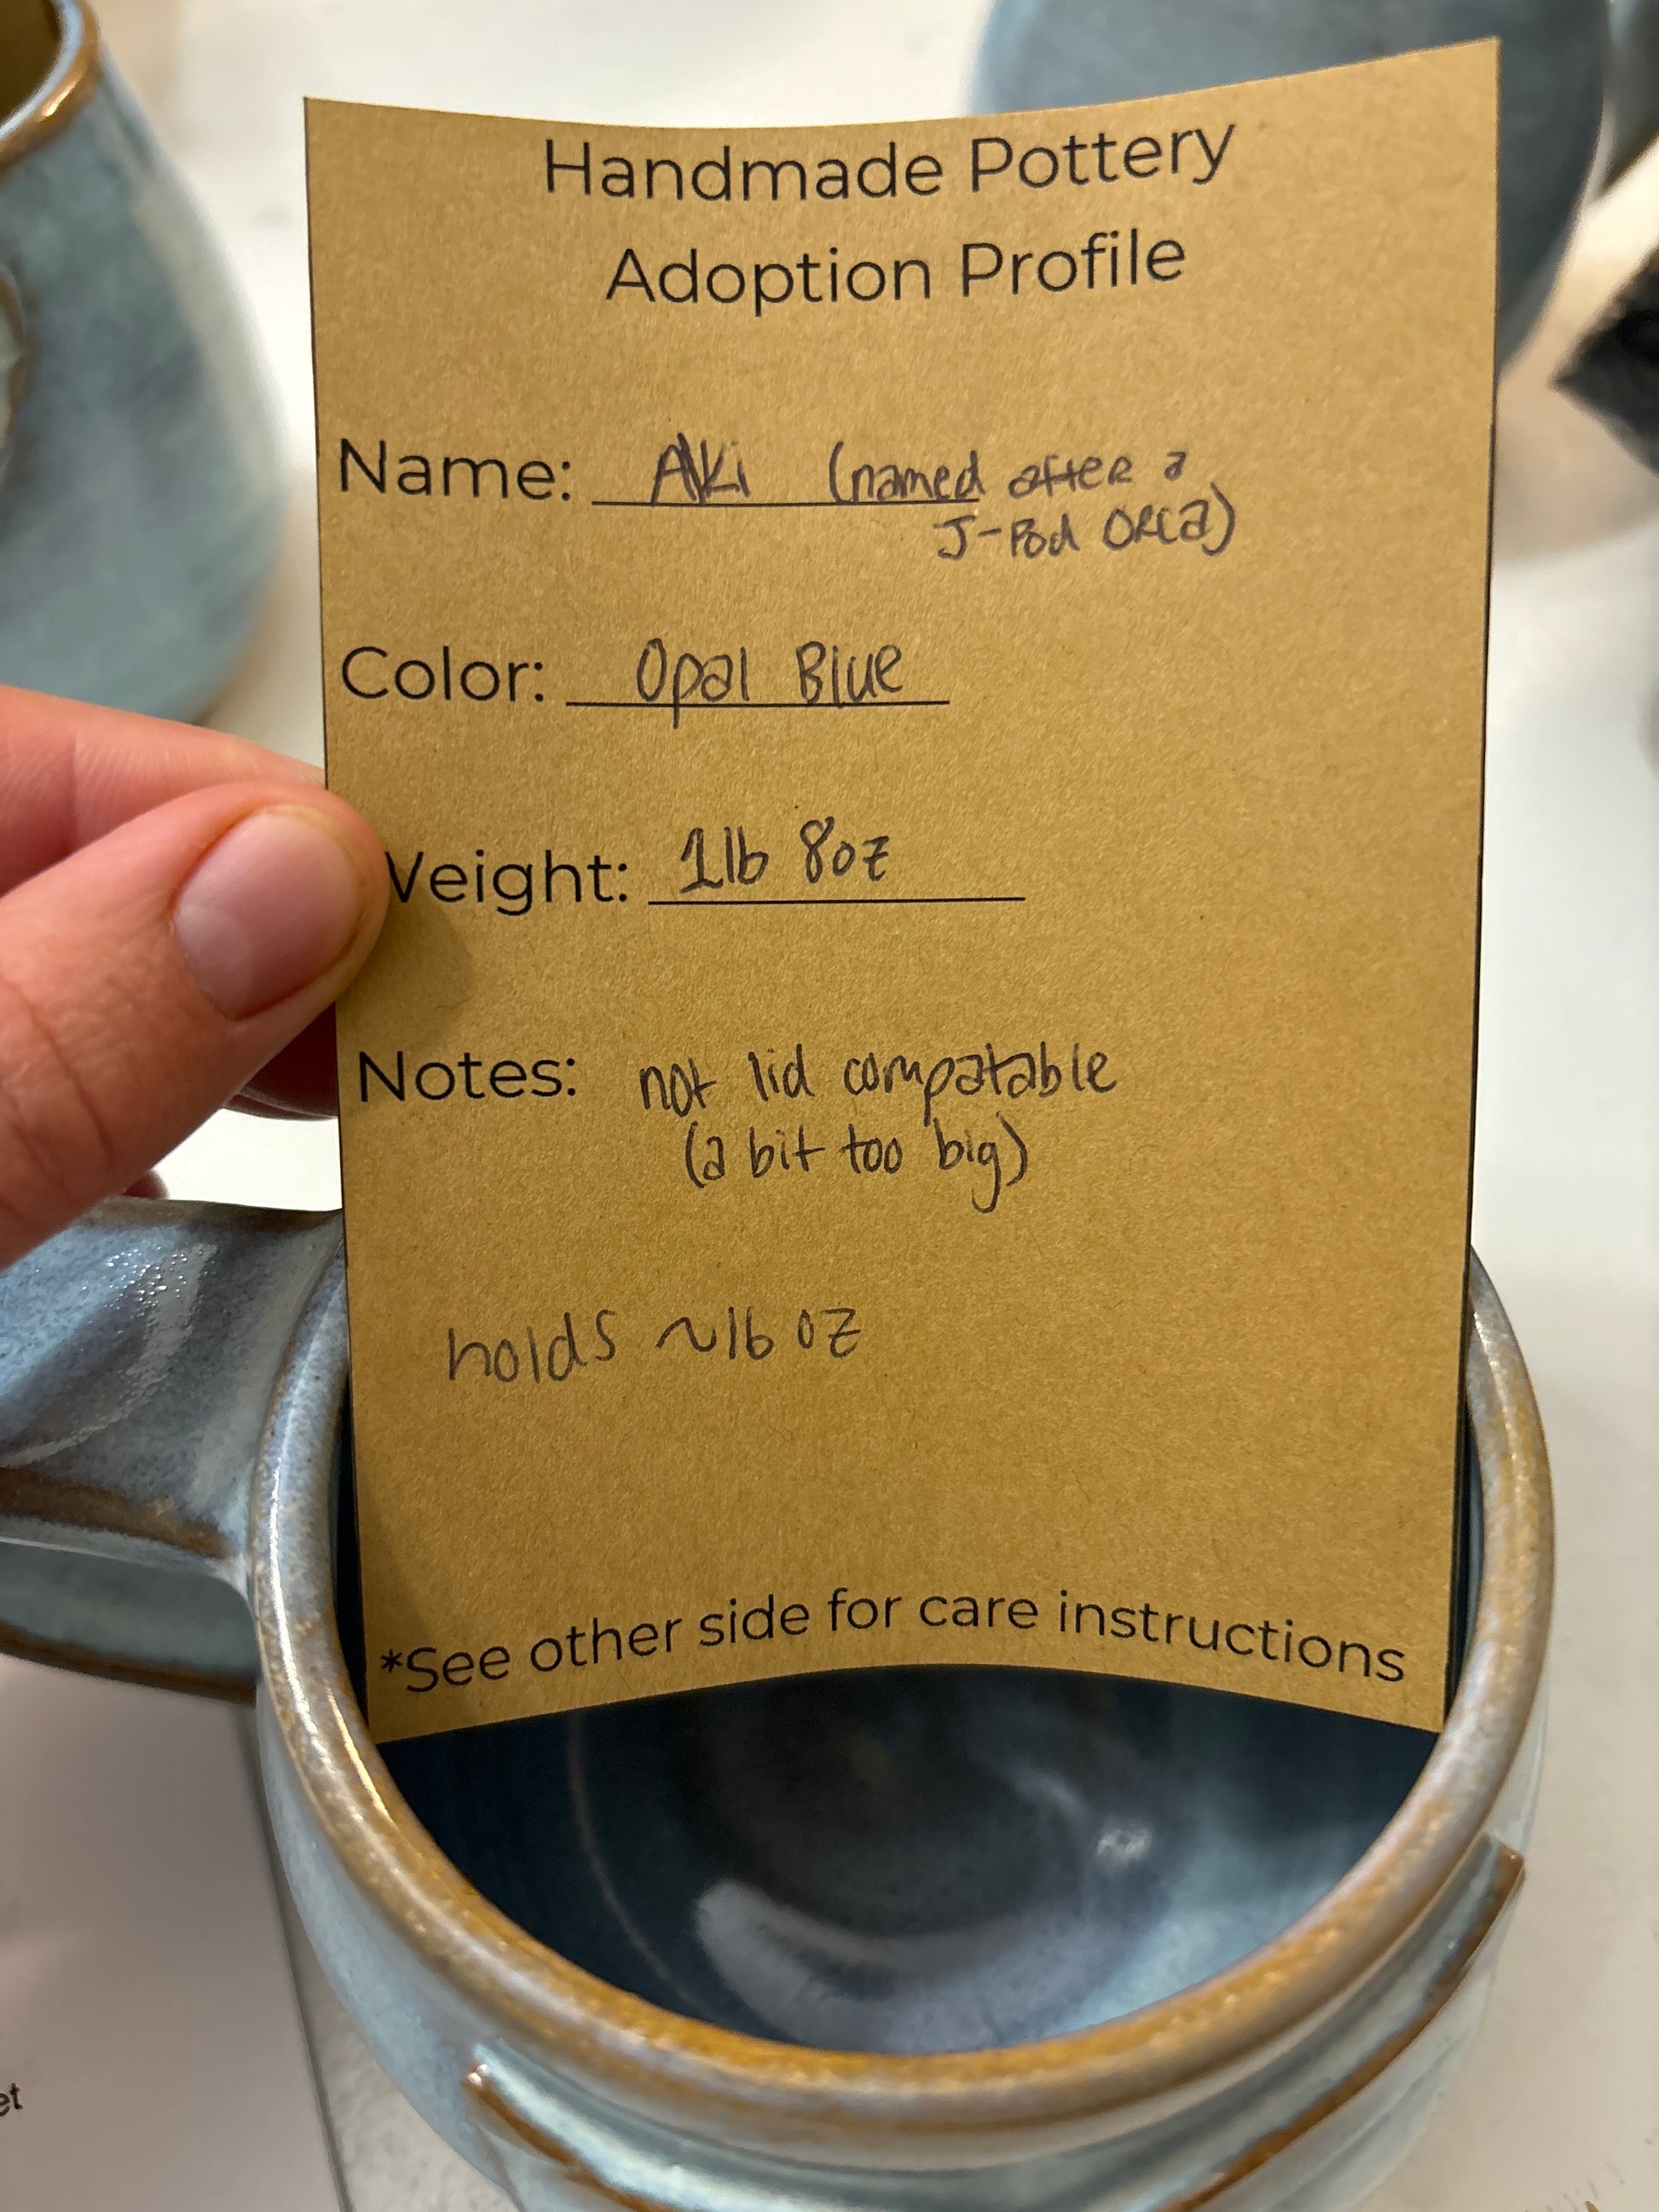 Handmade Pottery
Adoption Profile
Name: Aki (named after a
J-Pod Orca)
Color: Opal Blue
Weight: 1lb 8oz
Notes: not lid compatable
(a bit too big)
holds ~16 oz
*See other side for care instructions